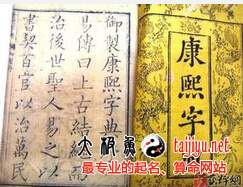 御製康熙字典
易傳曰上古結
治後世聖人易之以
書契百官以治萬民
康熙字
taijiyu.net
最专业的起名、算命网站